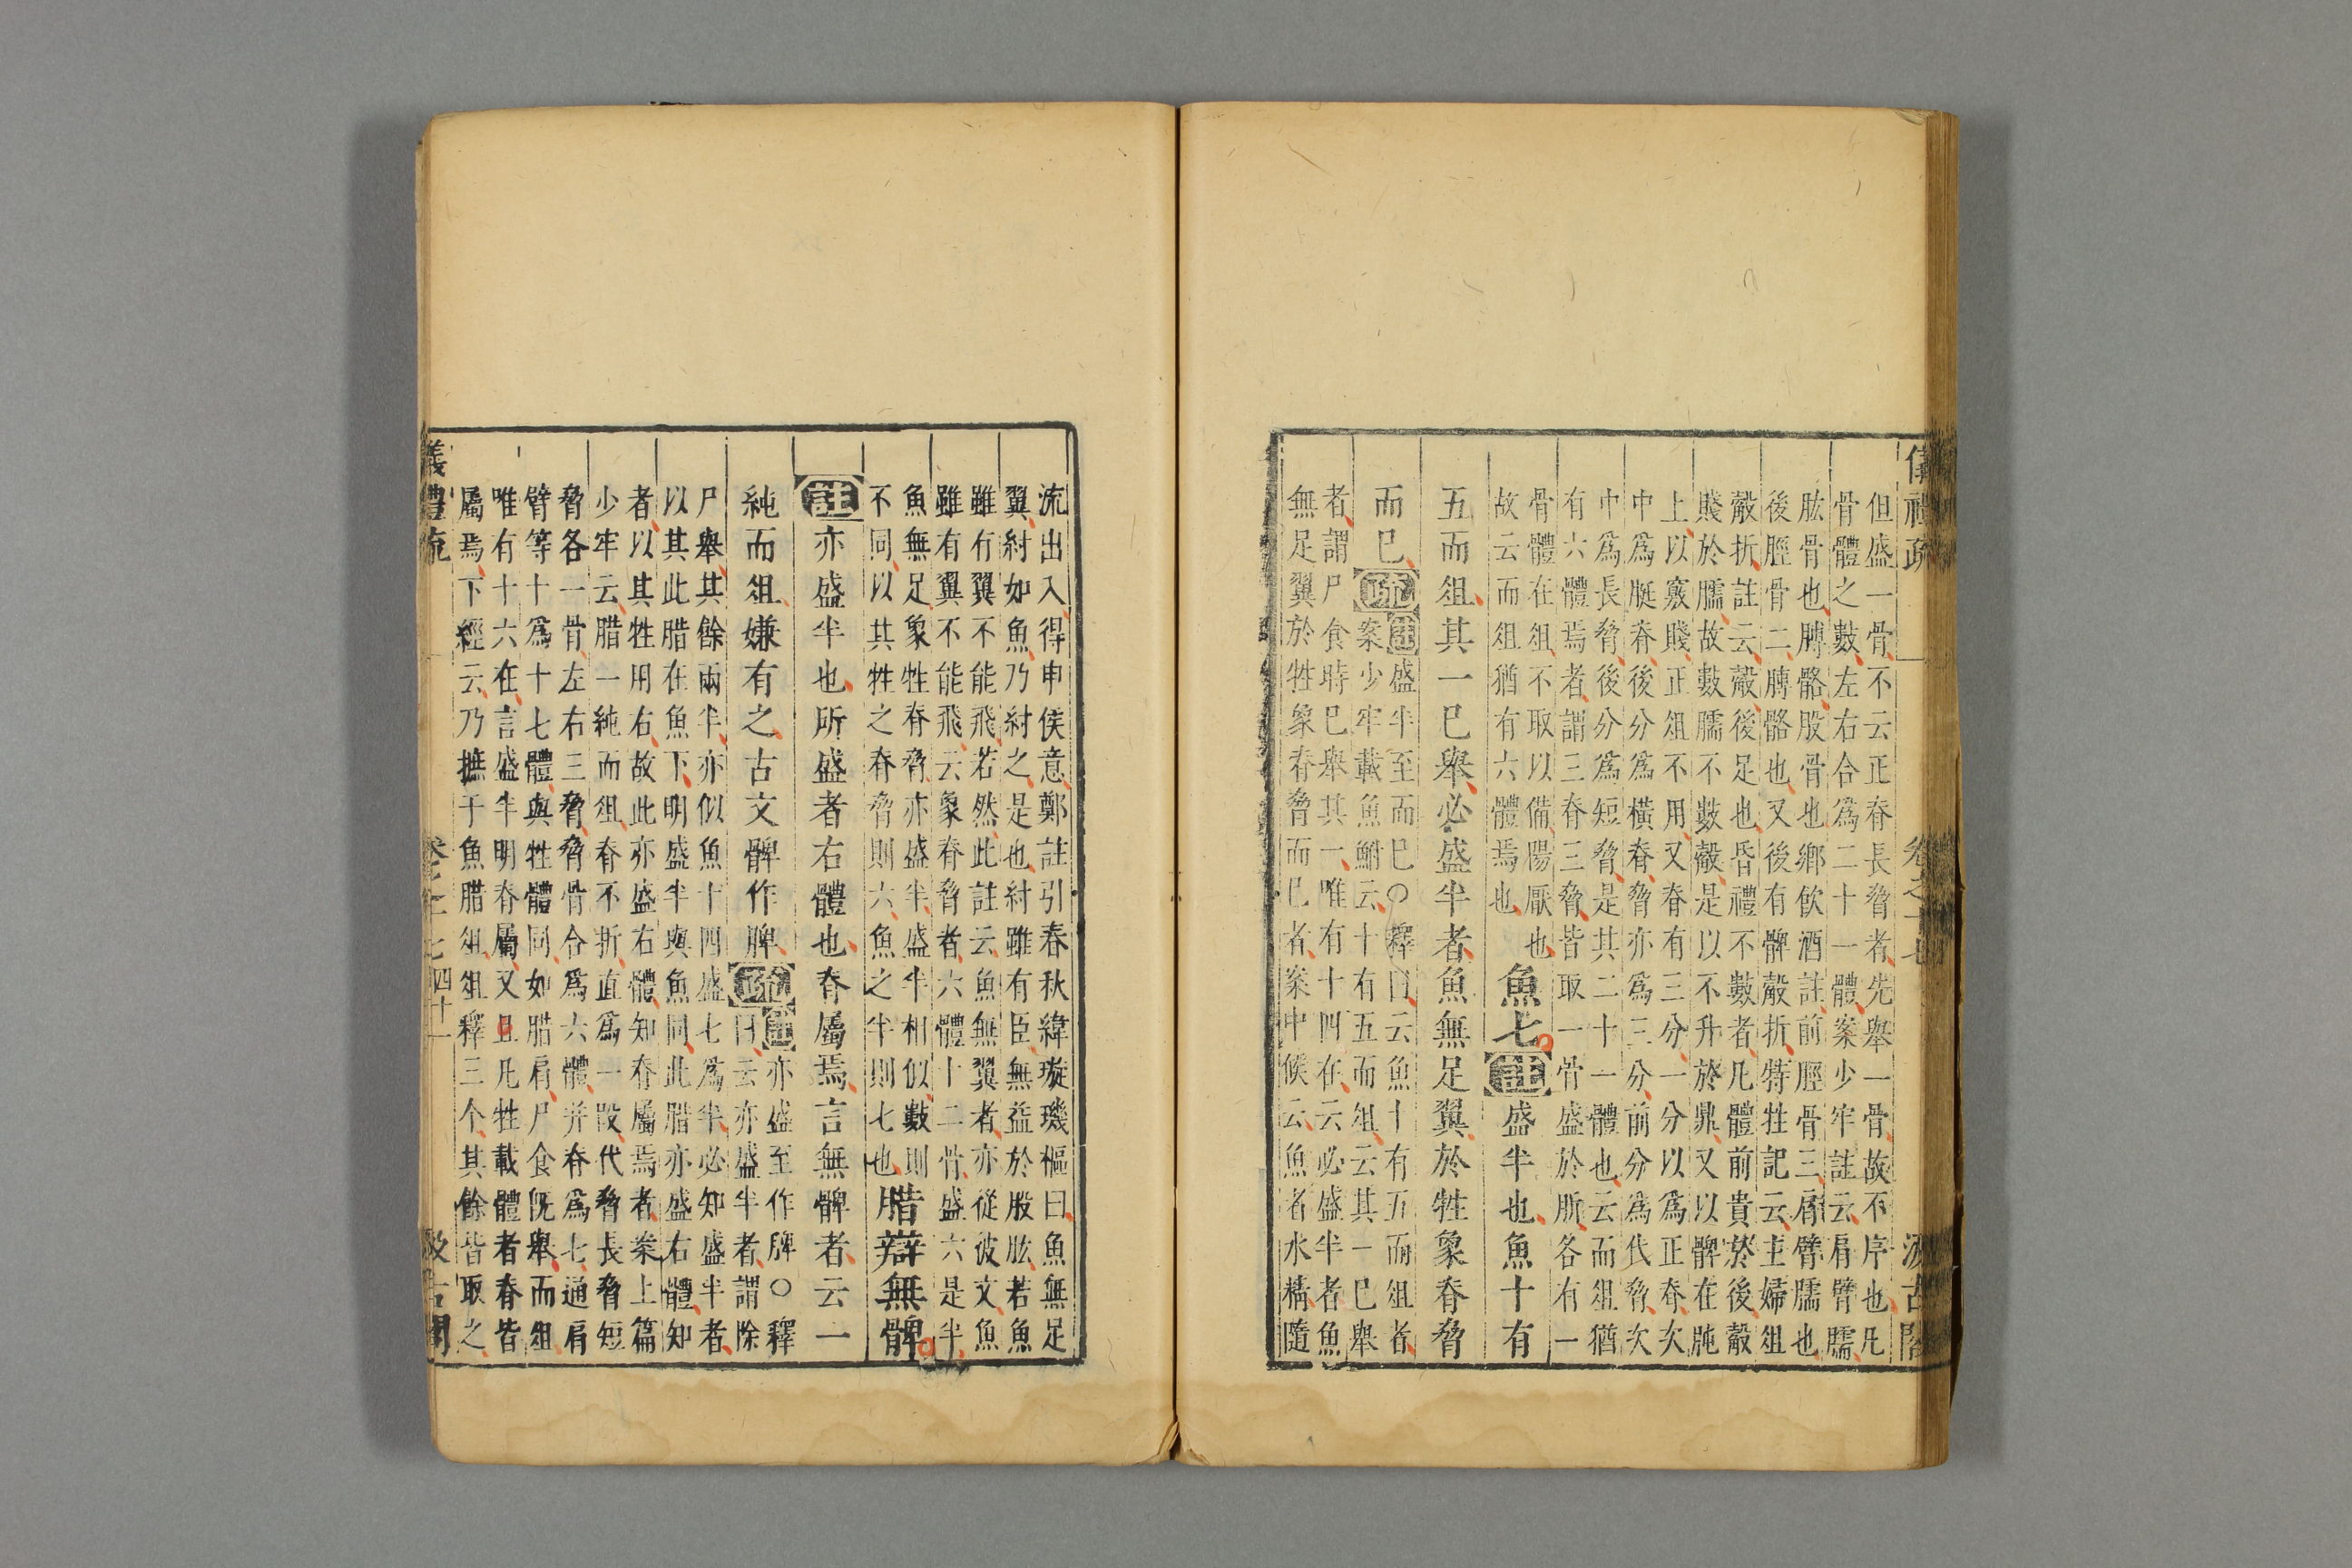 儀禮疏 卷之十七 汲古閣
但盛一骨不云正脊長脅者先舉一骨故不序也凡
骨體之數左右合為二十一體案少牢註云肩臂臑
肱骨也膊骼股骨也鄉飲酒註前脛骨三肩臂臑也
後脛骨二膊骼也又後有髀觳折特牲記云主婦俎
觳折註云觳後足也昏禮不數者凡體前貴於後觳
賤於臑故數臑不數觳是以不升於鼎又以髀在肫
上以竅賤正俎不用又脊有三分一分以為正脊次
中為脡脊後分為橫脊脅亦為三分前分為代脅次
中為長脅後分為短脅是其二十一體也云而俎猶
有六體焉者謂三脊三脅皆取一骨盛於肵各有一
骨體在俎不取以備陽厭也
故云而俎猶有六體焉也
魚七
註盛半也魚十有
五而俎其一已舉必盛半者魚無足翼於牲象脊脅
而已
疏註盛半至而已○釋曰云魚十有五而俎者
案少牢載魚鮒云十有五而俎云其一已舉
者謂尸食時已舉其一唯有十四在云必盛半者魚
無足翼於牲象脊脅而已者案中候云魚者水精隨
流出入得申侯意鄭註引春秋緯璇璣樞曰魚無足
翼紂如魚乃紂之是也紂雖有臣無益於股肱若魚
雖有翼不能飛若然此註云魚無翼者亦從彼文魚
雖有翼不能飛云象脊脅者六體十二骨盛六是半
魚無足象牲脊脅亦盛半盛半相似數則
不同以其牲之脊脅則六魚之半則七也
腊辯無髀
註亦盛半也所盛者右體也脊屬焉言無髀者云一
純而俎嫌有之古文髀作脾
疏註亦盛至作脾○釋
曰云亦盛半者謂除
尸舉其餘兩半亦似魚十四盛七為半必知盛半者
以其此腊在魚下明盛半與魚同此腊亦盛右體知
者以其牲用右故此亦盛右體知脊屬焉者案上篇
少牢云腊一純而俎脊不折直為一段代脅長脅短
脅各一骨左右三脅脅骨合為六體并脊為七通肩
臂等十為十七體與牲體同如腊肩尸食既舉而俎
唯有十六在言盛半明脊屬又且凡牲載體者脊皆
屬焉下經云乃摭于魚腊俎俎釋三个其餘皆取之
儀禮疏 卷之十七 四十一 汲古閣